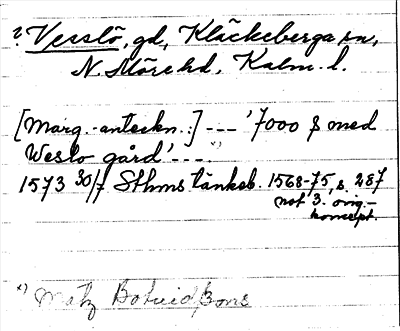 ? Vesslö, gd, Kläckeberga sn,
N. Möre hd, Kalm. l.
[Marg.-anteckn.:] --- '7000 ₰ med
Weslo gård' --- *)
1573 30/7 Sthms tänkeb. 1568-75, s. 287
not 3. orig.-
koncept.
*) Matz Botuidßons